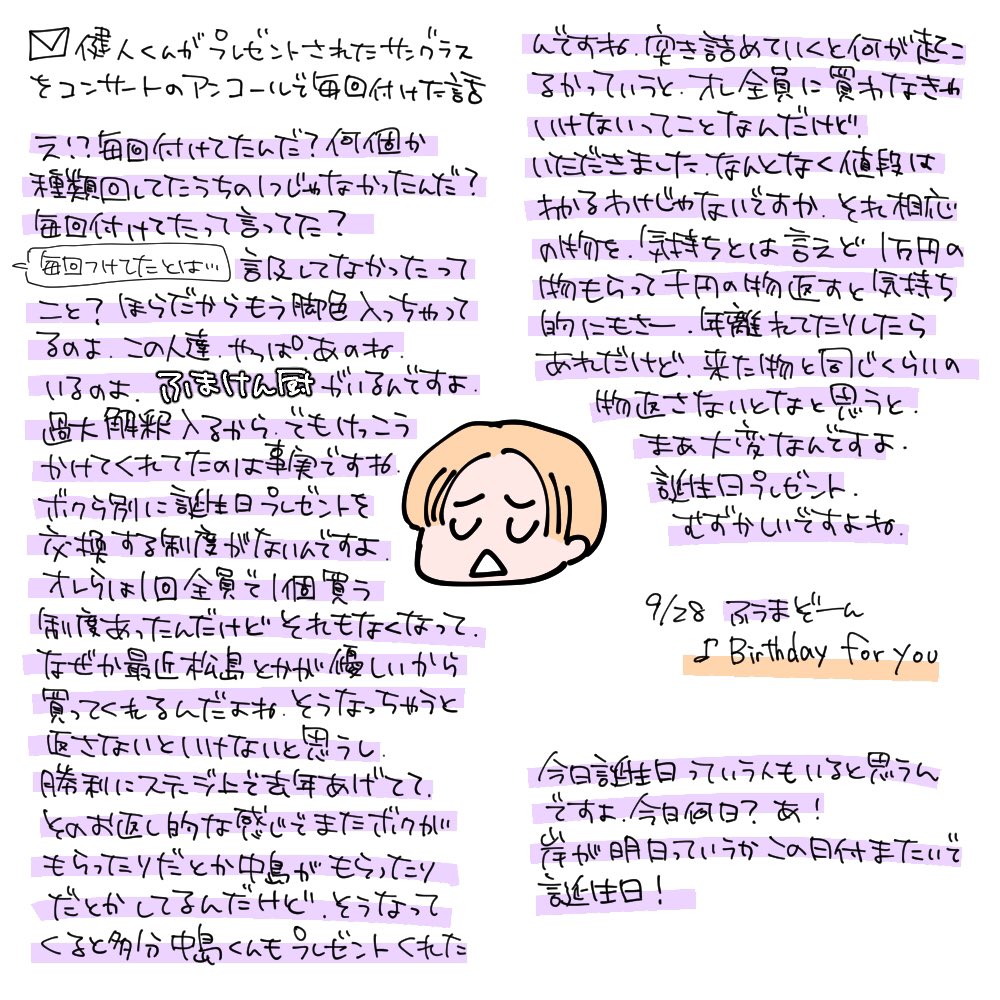 健人くんがプレゼントされたサングラス
をコンサートのアンコールで毎回付けた話
え!?毎回付けてたんだ?何個か
種類回してたうちの1つじゃなかったんだ?
毎回付けてたって言ってた?
毎回つけてたとは… 言及してなかったって
こと?ほらだからもう脚色入っちゃって
るのよ.この人達.やっぱ.あのね.
いるのよ.ふまけん厨がいるんですよ.
過大解釈入るから.でもけっこう
かけてくれてたのは事実ですね.
ボクら別に誕生日プレゼントを
交換する制度がないんですよ.
オレらは1回全員で1個買う
制度あったんだけどそれもなくなって.
なぜか最近松島とかが優しいから
買ってくれるんだよね.そうなっちゃうと
返さないといけないと思うし.
勝利にステージ上で去年あげてて.
そのお返し的な感じでまたボクが
もらったりだとか中島がもらったり
だとかしてるんだけど.そうなって
くると多分中島くんもプレゼントくれた
んですね.突き詰めていくと何が起こ
るかっていうと.オレ全員に買わなきゃ
いけないってことなんだけど.
いただきました.なんとなく値段は
わかるわけじゃないですか.それ相応
の物を.気持ちとは言えど1万円の
物もらって千円の物返すと気持ち
的にもさー.年離れてたりしたら
あれだけど.来た物と同じくらいの
物返さないとなと思うと.
まあ大変なんですよ.
誕生日プレゼント.
むずかしいですよね.
9/28 ふうまぞーん
♪ Birthday for you
今日誕生日っていう人もいると思うん
ですよ.今日何日?あ!
岸が明日っていうかこの日付またいで
誕生日!